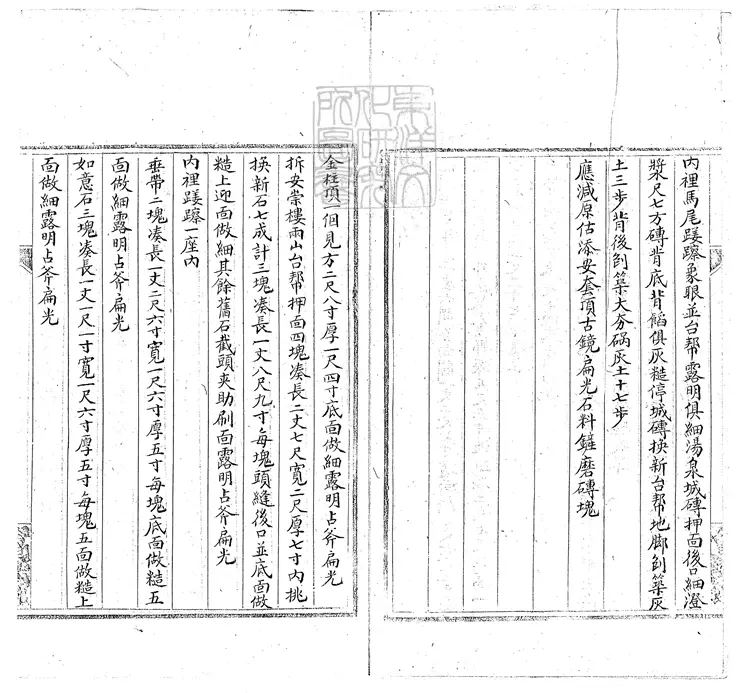 內裡馬尾踺躦象眼並台幫露明俱細湯泉城磚押面後口細澄
漿尺七方磚背底背餡俱灰糙停城磚換新台幫地腳刨築灰
土三步背後刨築大夯碢灰土十七步
應減原估添安套頂古鏡扁光石料鏟磨磚塊
金柱頂一個見方二尺八寸厚一尺四寸底面做細露明占斧扁光
拆安崇樓兩山台幫押面四塊湊長二丈七尺寬二尺厚七寸內挑
換新石七成計三塊湊長一丈八尺九寸每塊頭縫後口並底面做
糙上迎面做細其餘舊石截頭夾肋刷面露明占斧扁光
內裡踺躦一座內
垂帶二塊湊長一丈二尺六寸寬一尺六寸厚五寸每塊底面做糙五
面做細露明占斧扁光
如意石三塊湊長一丈一尺一寸寬一尺六寸厚五寸每塊五面做糙上
面做細露明占斧扁光